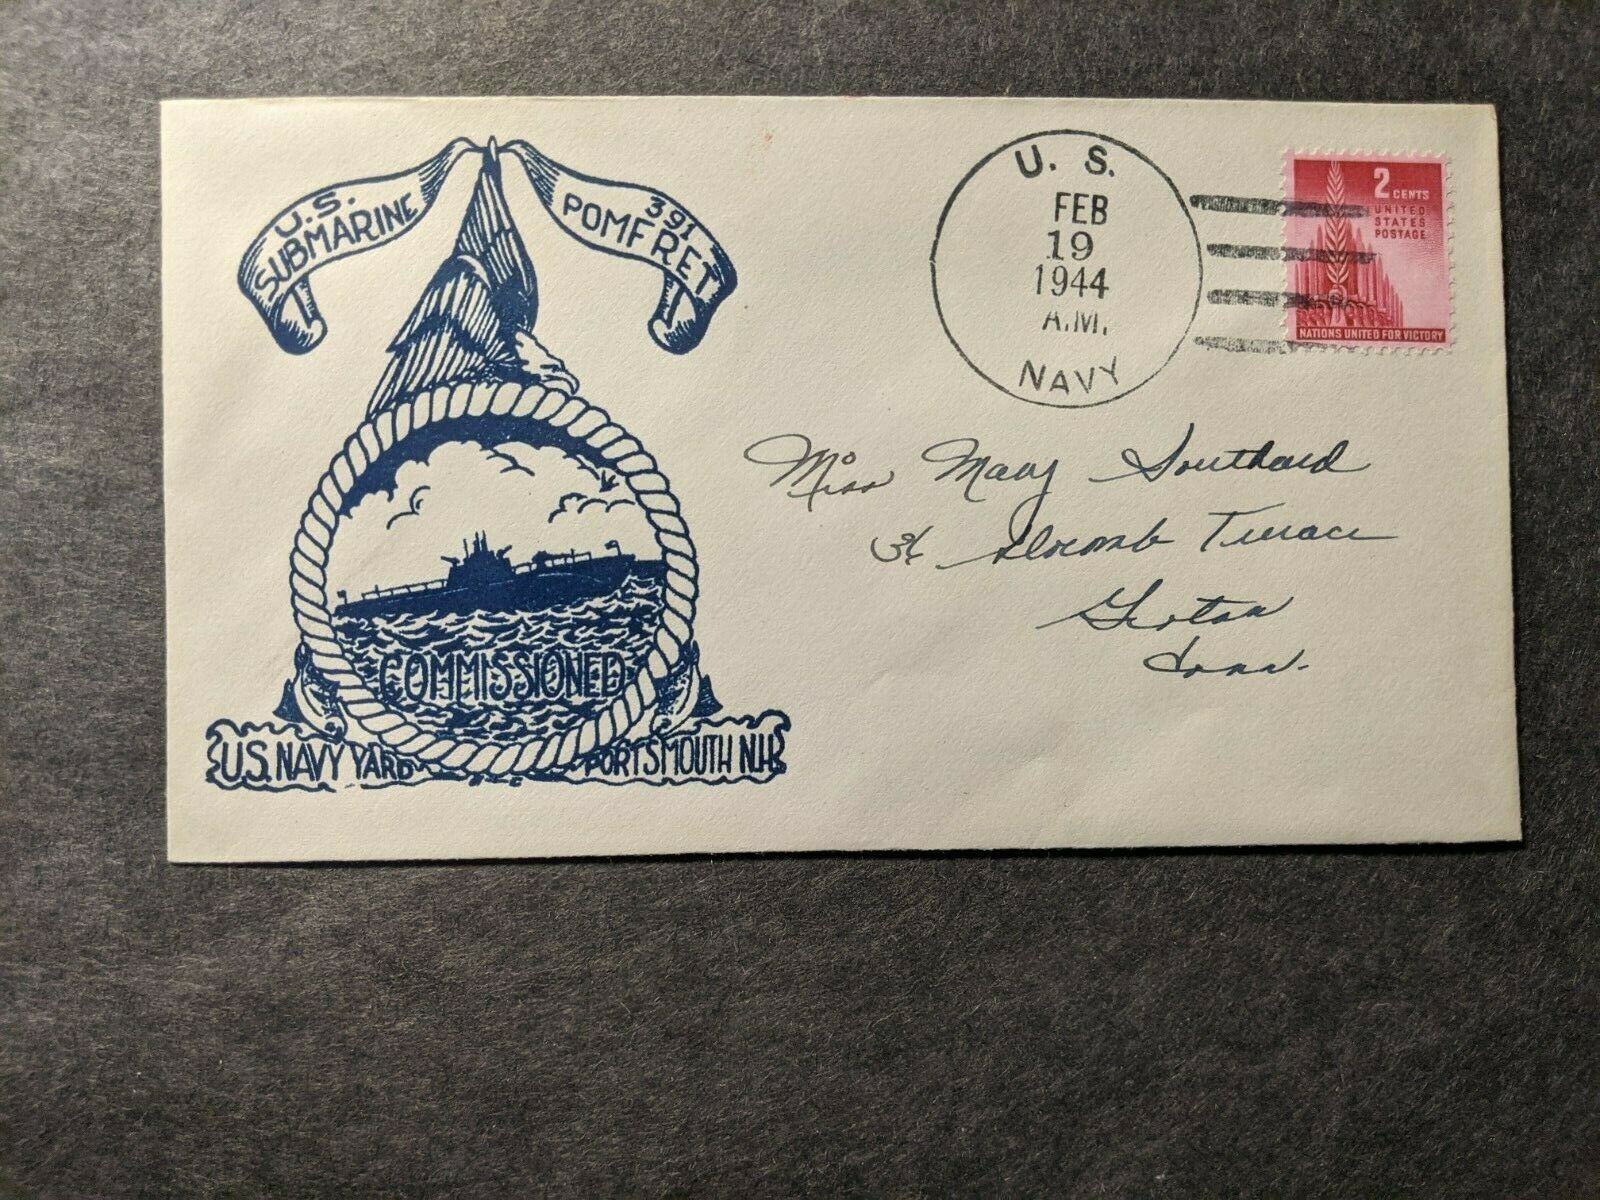 U.S.
SUBMARINE
391
POMFRET
COMMISSIONED
U.S. NAVY YARD
PORTSMOUTH N.H.
U. S.
FEB
19
1944
A.M.
NAVY
2
CENTS
UNITED
STATES
POSTAGE
NATIONS UNITED FOR VICTORY
Miss Mary Southard
Slocomb Terrace
Groton
Conn.